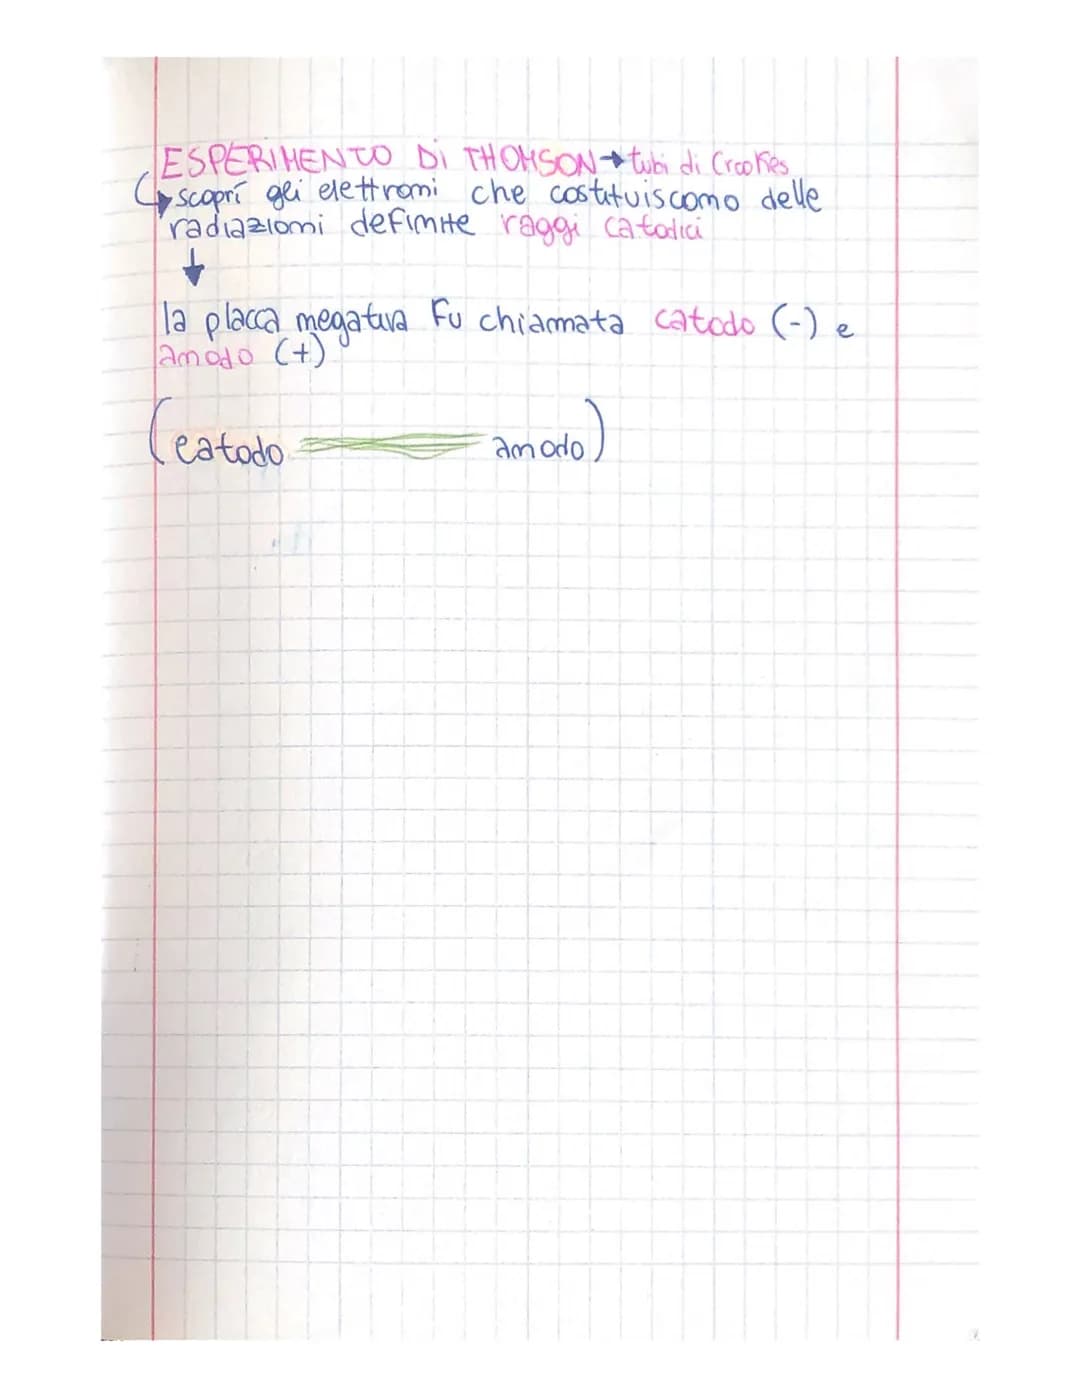 ESPERIMENTO Di THOMSON → tubi di Crookes
↳ scoprí gli elettroni che costituiscono delle
radiazioni definite raggi catodici
↓
la placca negativa Fu chiamata catodo (-) e
anodo (+)
(catodo anodo)